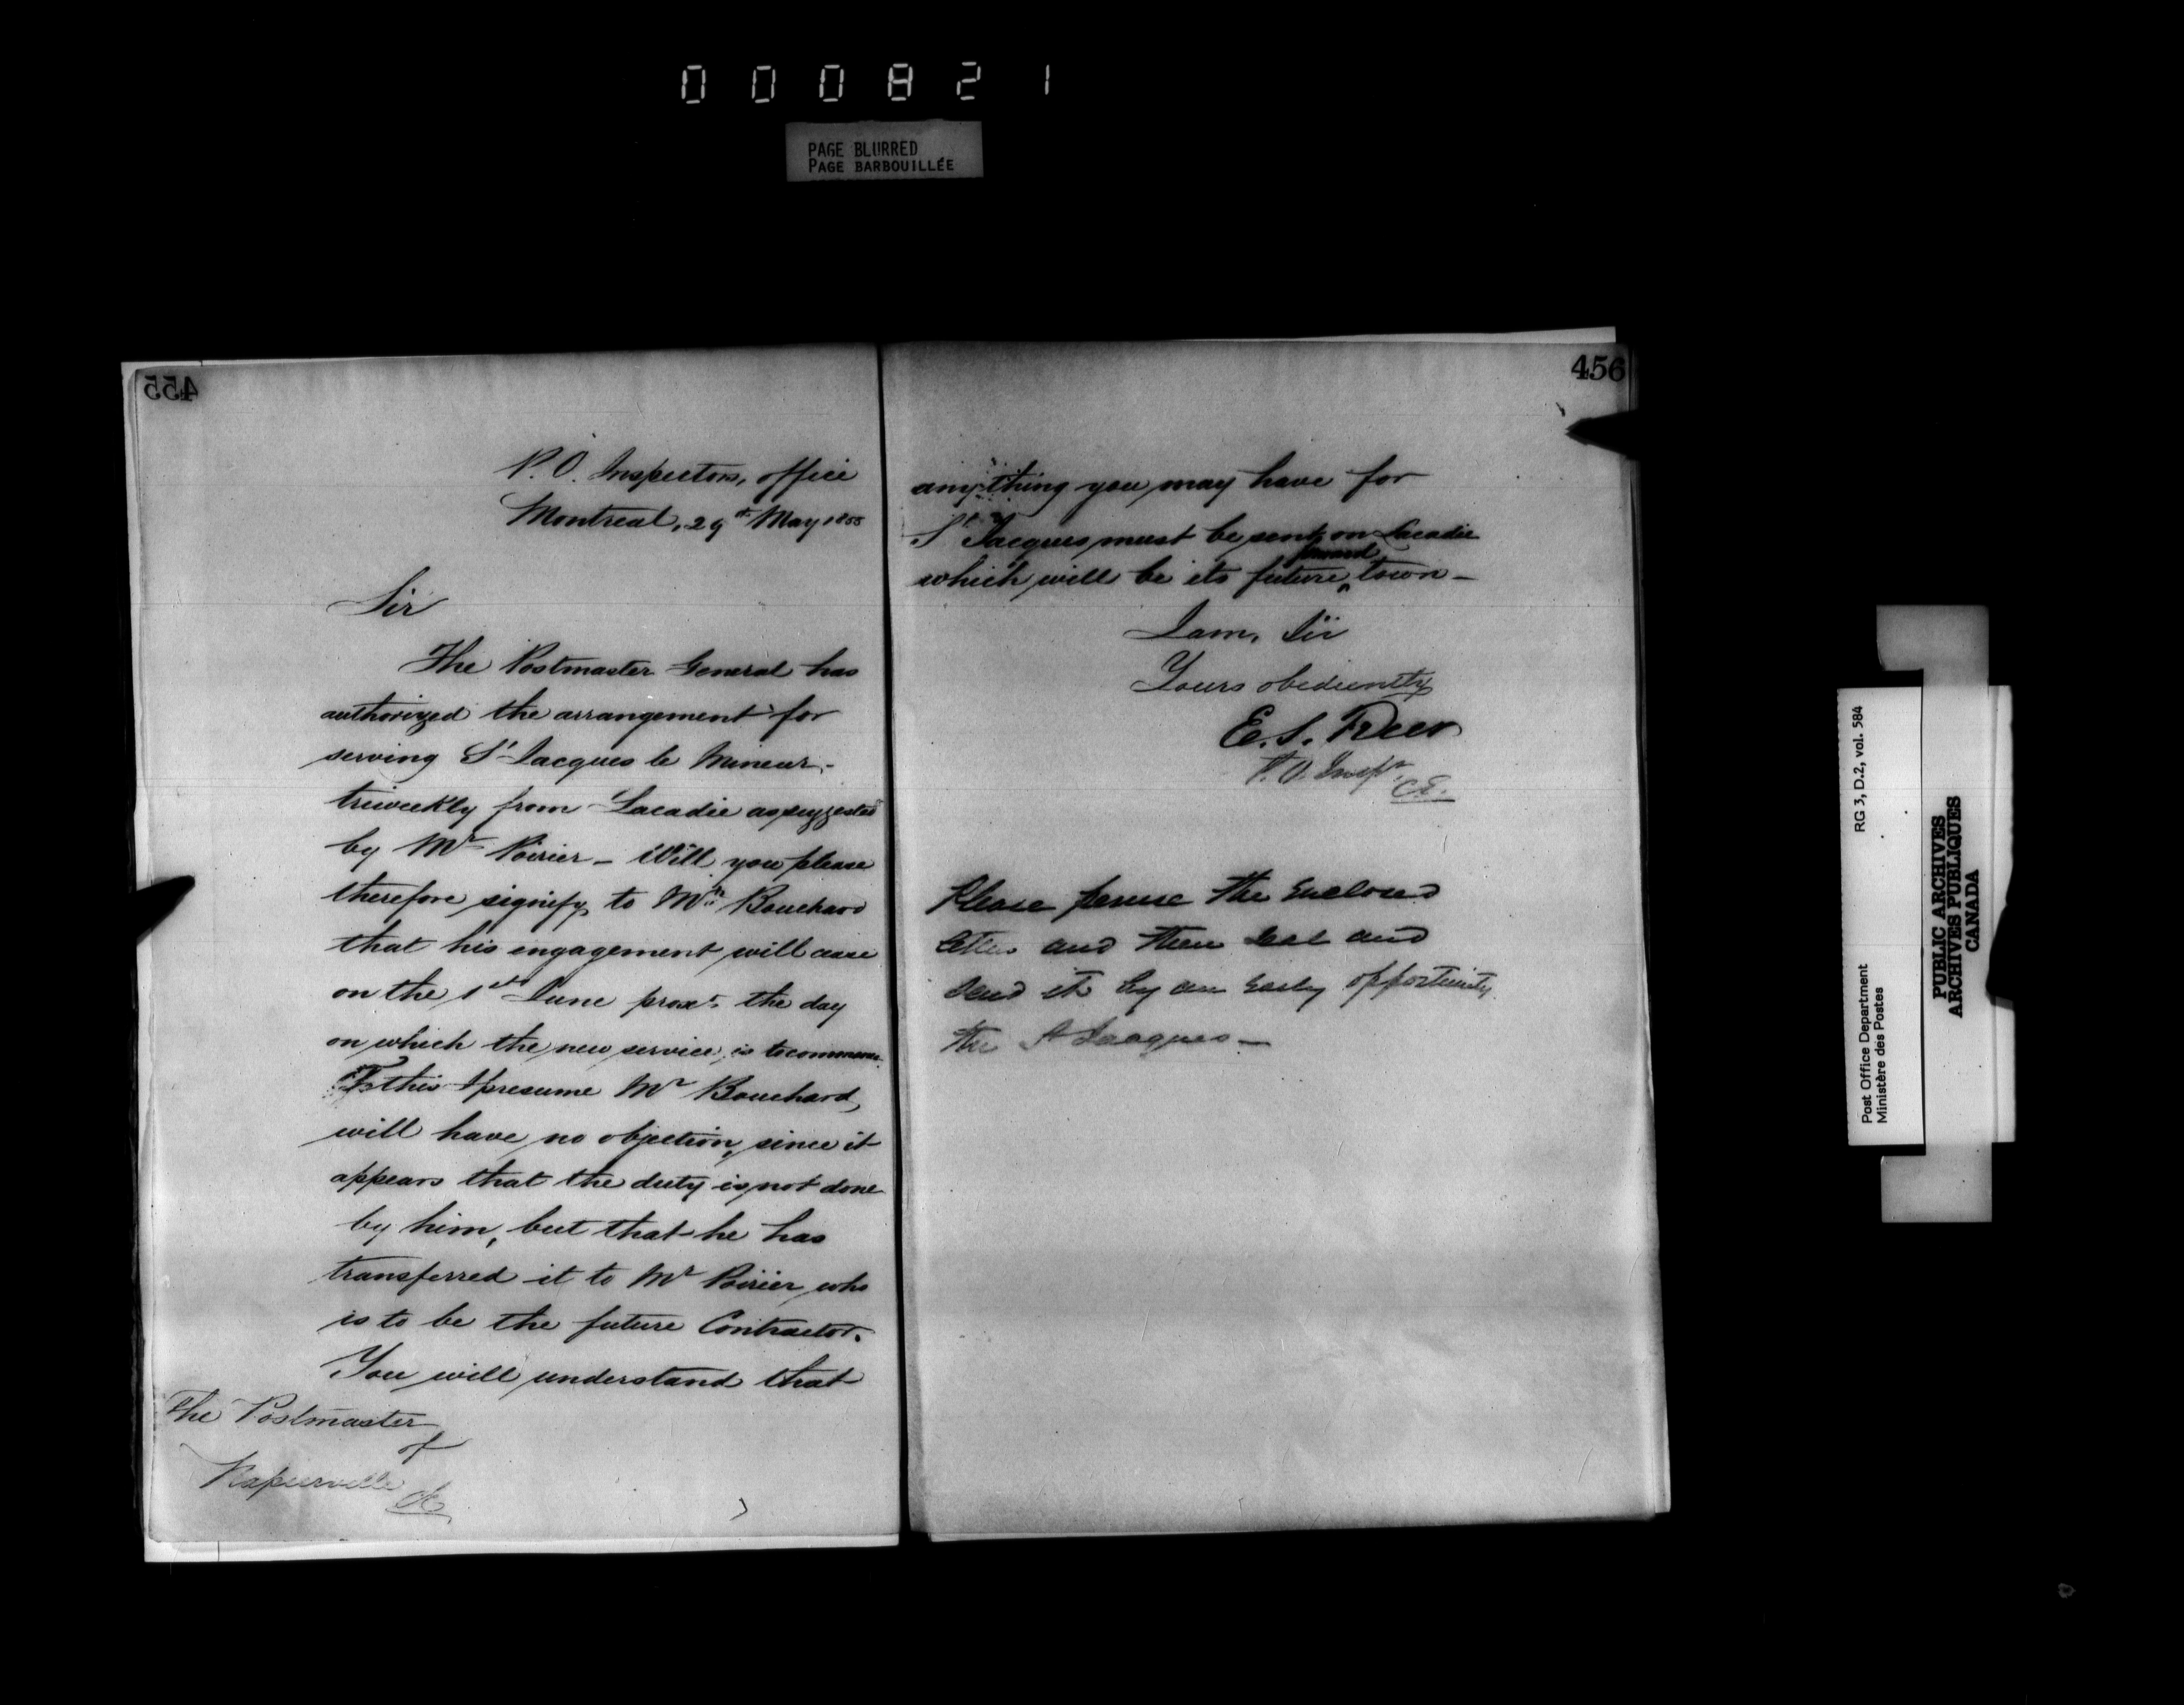 000821
PAGE BLURRED
PAGE BARBOUILLÉE
455
P. O. Inspectors, office
Montreal, 29th May 1855
Sir
The Postmaster General has
authorized the arrangement for
serving St Jacques le Mineur
triweekly from Lacadie as suggested
by Mr Poirier – Will you please
therefore signify to Mr Bouchard
that his engagement will cease
on the 1st June proxo. the day
on which the new service is to commence
To this I presume Mr Bouchard,
will have no objection, since it
appears that the duty is not done
by him, but that he has
transferred it to Mr Poirier who
is to be the future Contractor.
You will understand that
The Postmaster
of
Napierville CE
456
anything you may have for
St Jacques must be sent on Lacadie
which will be its future town –
I am, Sir
Yours obediently
E. S. Freer
P. O. Inspr.
C.E.
Please peruse the enclosed
letter and then seal and
send it by an early opportunity
the St Jacques –
Post Office Department RG 3, D.2, vol. 584
Ministère des Postes
PUBLIC ARCHIVES
ARCHIVES PUBLIQUES
CANADA